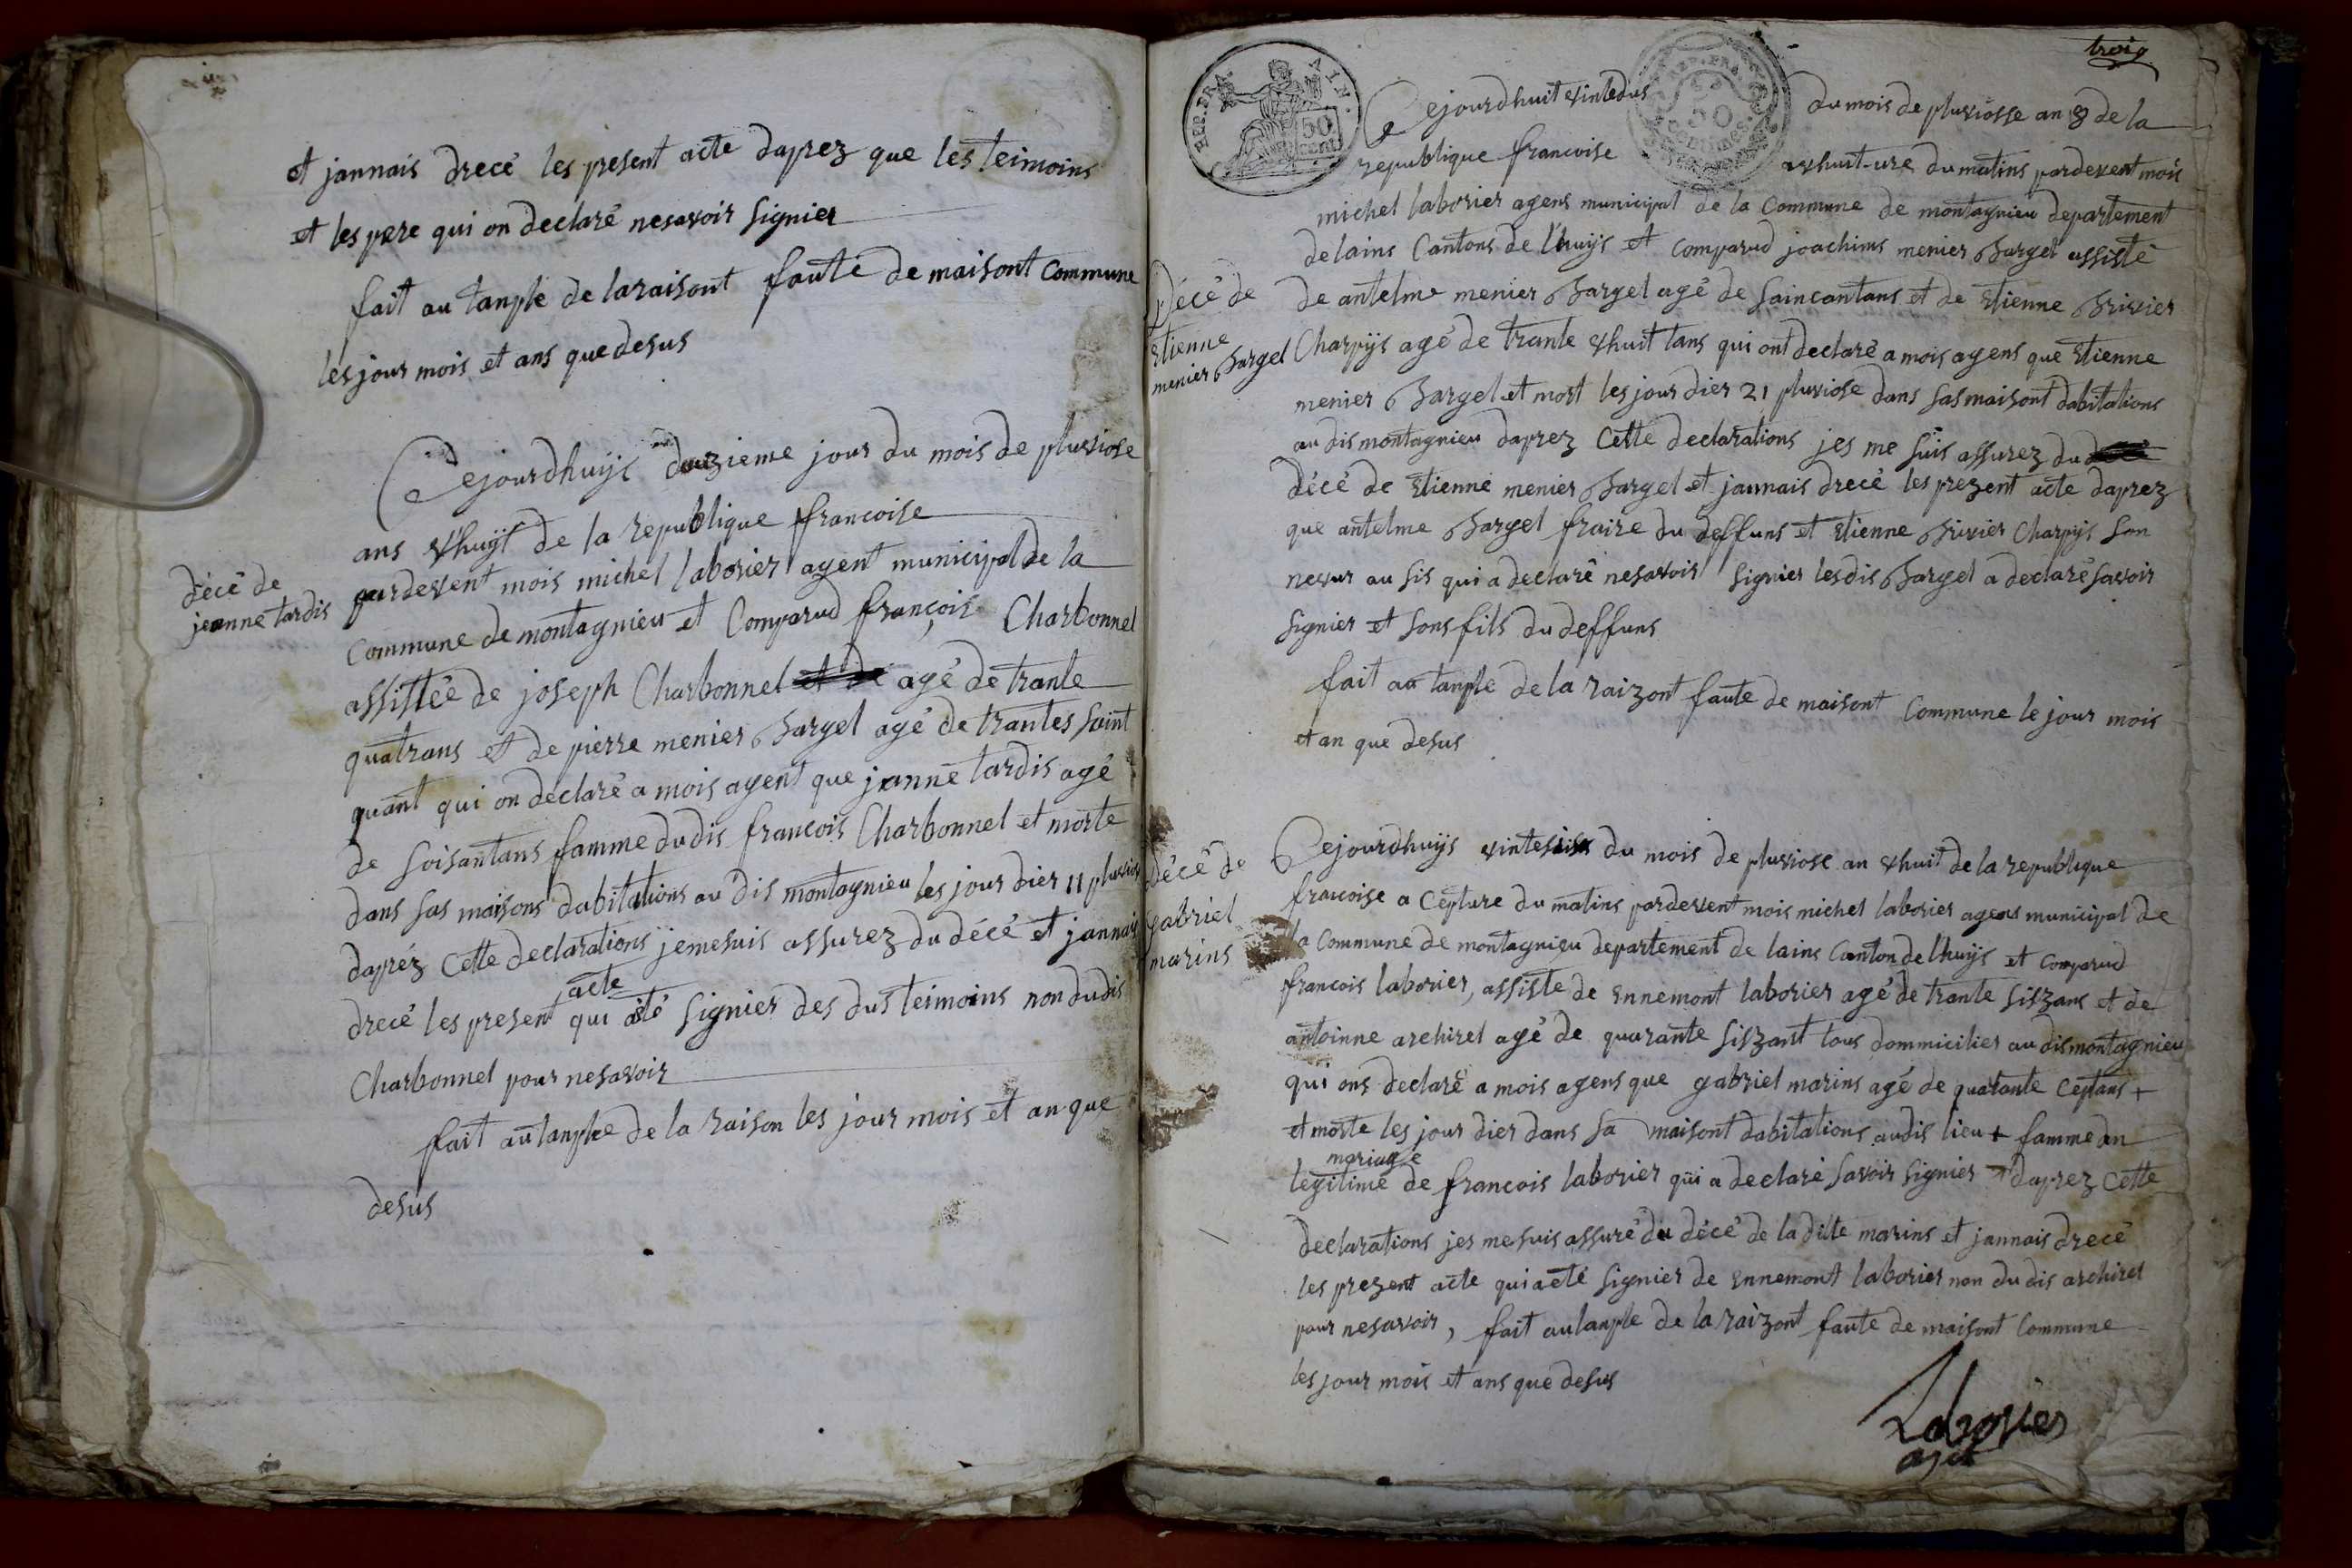 et jannais drecé les present acte daprez que les teimoins
et les pere qui on declaré nesavoir signier
fait au tanple de laraisont faute de maisont commune
les jour mois et ans que desus
Cejourdhuijs douzieme jour du mois de pluviose
ans vhuijt de la republique francoise
décé de
jeanne tardis
pardevent mois michel laborier agent municipal de la
commune de montagnieu et comparud françois Charbonnel
assistée de joseph Charbonnel et de agé de trante
quatrans et de pierre menier Bargel agé de trantes saint
quant qui on declaré a mois agent que jeanne tardis agé
de soisantans famme dudis francois Charbonnel et morte
dans sas maisons dabitations au dis montagnieu les jour dier 11 pluvios
dapréz cette declarations jemesuis assurez du décé et jannais
drecé les present acte qui aété signier des dus teimoins non dudis
Charbonnel pour nesavoir
fait autanple de la raison les jour mois et an que
desus
trois
REP. FRA. AIN.
50 cent.
REP. FRA.
50 centimes
Cejourdhuit vintedus du mois de pluviosse an 8 de la
republique francoise avhuit ure du matins pardevent mois
michel laborier agens municipal de la commune de montagnieu departement
delains Cantons de l'huijs et comparud joachims menier Bargel assisté
Décé de
etienne
menier Bargel
de antelme menier Bargel agé de saincantans et de etienne Brivier
Charpijs agé de trante vhuit tans qui ont declaré a mois agens que etienne
menier Bargel et mort les jour dier 21 pluviose dans sas maisont dabitations
au dis montagnieu daprez cette declarations jes me suis assurez du
décé de etienne menier Bargel et jannais drecé les prezent acte daprez
que antelme Bargel fraire du deffuns et etienne Brivier Charpijs son
nevur au sis qui a declaré nesavois signier lesdis Bargel a declaré savoir
signier et sons fils du deffuns
fait au tanple de la raizont faute de maisont commune le jour mois
et an que desus
Cejourdhuijs vintesis du mois de pluviose an vhuit de la republique
décé de
gabriel
marins
francoise a cepture du matins pardevent mois michel laborier agens municipal de
la commune de montagnieu departement de lains Canton delhuijs et comparud
francois laborier, assiste de ennemont laborier agé de trante siszans et de
antoinne archirel agé de quarante siszant tous dommicilier au dis montagnieu
qui ons declaré a mois agens que gabriel marins agé de quatante ceptans +
et morte les jour dier dans sa maisont dabitations audis lieu + famme an
legitime mariage de francois laborier qui a declaré savoir signier daprez cette
declarations jes me suis assuré du décé de la dite marins et jannais drecé
les prezent acte qui aété signier de ennemont laborier non du dis archirel
pour nesavoir, fait autanple de la raizont faute de maisont commune
les jour mois et ans que desus
Laborier
agt